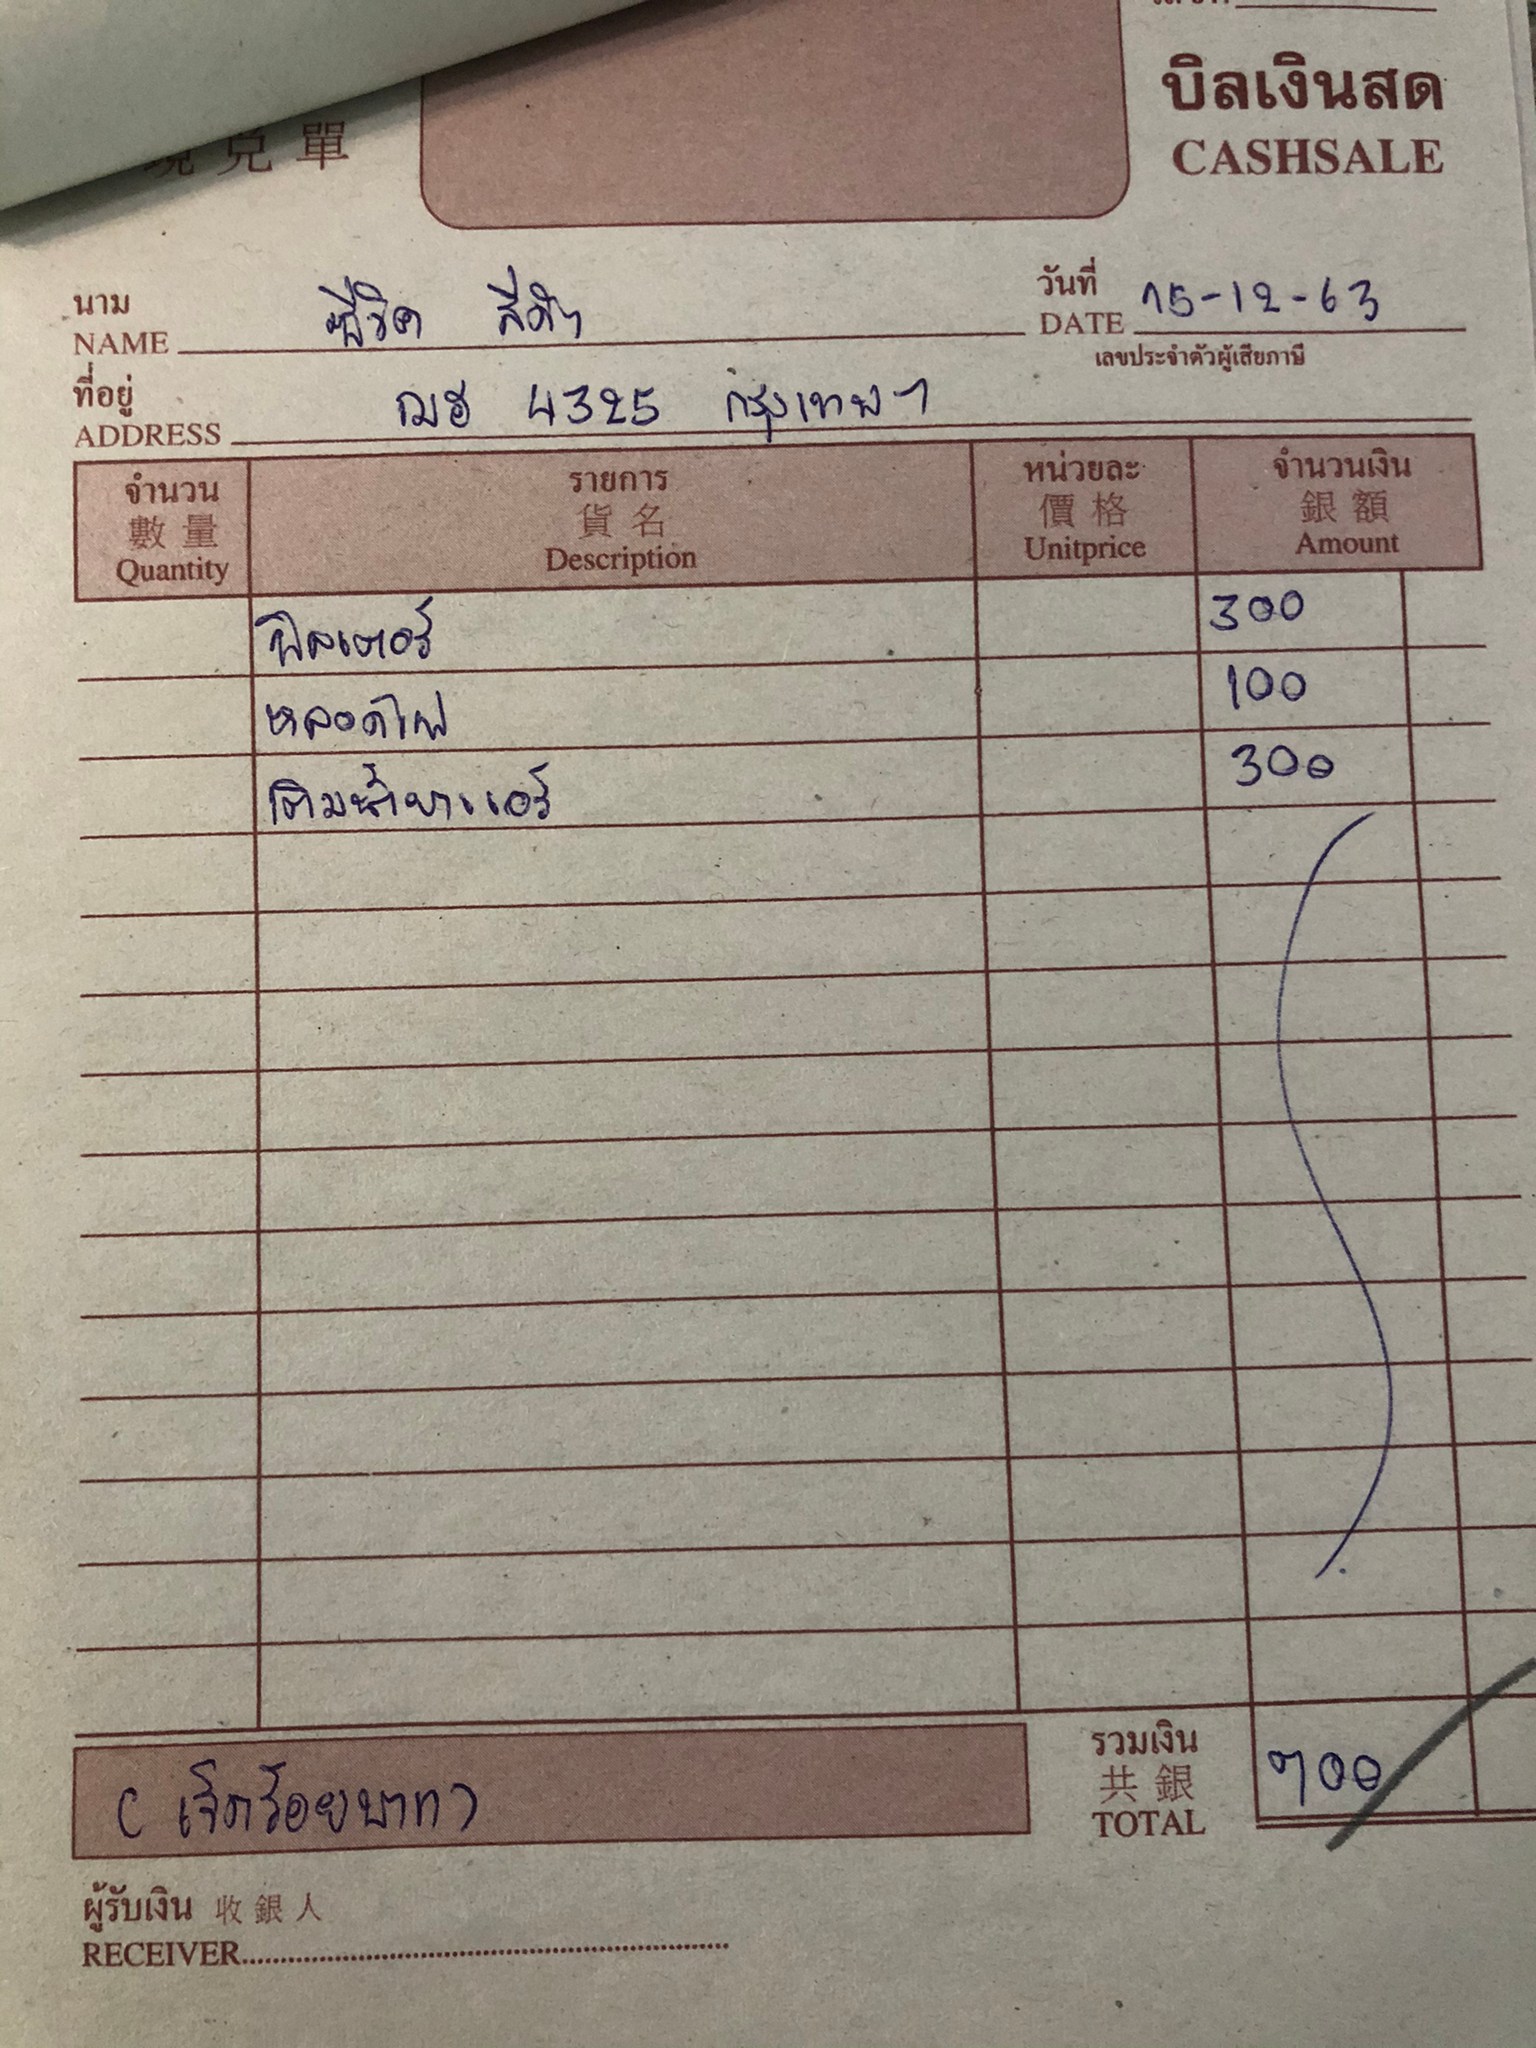 บิลเงินสด
兌 單
CASHSALE
นาม
NAME
วันที่
DATE 15-12-63
เลขประจำตัวผู้เสียภาษี
ที่อยู่
ADDRESS ฌฮ 4325 กรุงเทพฯ
จำนวน รายการ หน่วยละ จำนวนเงิน
數量 貨名 價格 銀額
Quantity Description Unitprice Amount
ฟิลเตอร์ 300
หลอดไฟ 100
เติมน้ำยาแอร์ 300
รวมเงิน
共銀
TOTAL 700
(เจ็ดร้อยบาท)
ผู้รับเงิน 收銀人
RECEIVER